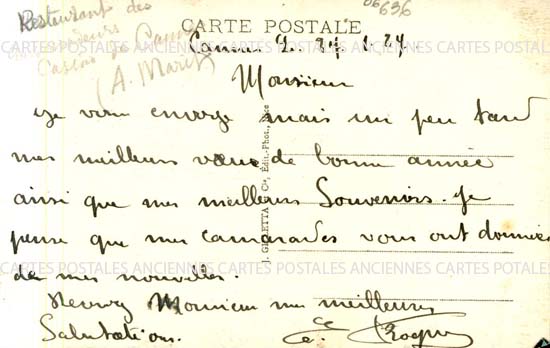 Restaurant des
Ambassadeurs
Casino de Cannes
(A. Maret)
06636
CARTE POSTALE
Cannes 2. 27. 1. 27.
ANCIENNES CARTES POSTALES ANCIENNES CARTES POSTALES ANCIENNES
Monsieur
Je vous envoye mais un peu tard
mes meilleurs vœux de bonne année
ainsi que mes meilleurs Souvenirs. Je
pense que mes camarades vous ont données
CARTES POSTALES ANCIENNES CARTES POSTALES ANCIENNES CARTES POTALES
de mes nouvelles.
Recevez Monsieur mes meilleures
Salutations.
J. GILETTA & Cie, Édit.-Phot., Nice